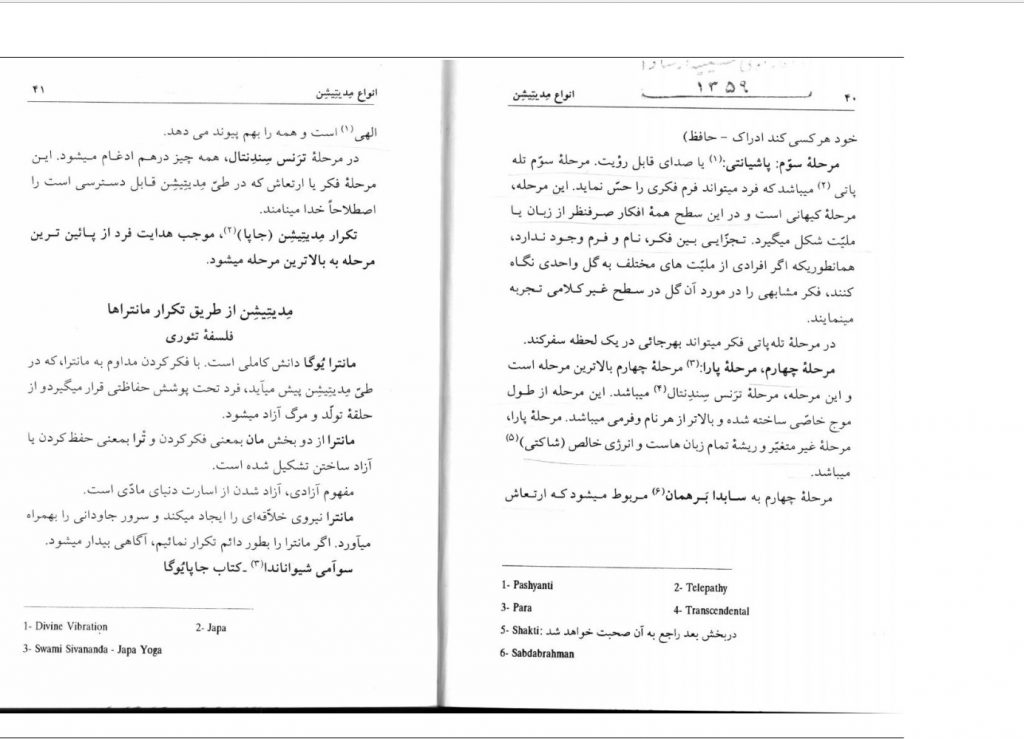 ۴۰
انواع مِدیتِیشِن
۱۳۵۹
خود هرکسی کند ادراک - حافظ)
مرحلهٔ سوّم: پاشیانتی:(۱) یا صدای قابل رؤیت. مرحلهٔ سوّم تله
پاتی (۲) میباشد که فرد میتواند فرم فکری را حسّ نماید. این مرحله،
مرحلهٔ کیهانی است و در این سطح همهٔ افکار صرفنظر از زبان یا
ملیّت شکل میگیرد. تجزّایی بین فکر، نام و فرم وجود ندارد،
همانطوریکه اگر افرادی از ملیّت های مختلف به گل واحدی نگاه
کنند، فکر مشابهی را در مورد آن گل در سطح غیرکلامی تجربه
مینمایند.
در مرحلهٔ تله‌پاتی فکر میتواند بهرجائی در یک لحظه سفرکند.
مرحلهٔ چهارم، مرحلهٔ پارا:(۳) مرحلهٔ چهارم بالاترین مرحله است
و این مرحله، مرحلهٔ ترَنس سِندِنتال(۴) میباشد. این مرحله از طول
موج خاصّی ساخته شده و بالاتر از هر نام وفرمی میباشد. مرحلهٔ پارا،
مرحلهٔ غیر متغیّر و ریشهٔ تمام زبان هاست و انرژی خالص (شاکتی)(۵)
میباشد.
مرحلهٔ چهارم به سابدا بَرهمان(۶) مربوط میشود که ارتعاش
1- Pashyanti
2- Telepathy
3- Para
4- Transcendental
5- Shakti: دربخش بعد راجع به آن صحبت خواهد شد
6- Sabdabrahman
انواع مِدیتِیشِن
۴۱
الهی(۱) است و همه را بهم پیوند می دهد.
در مرحلهٔ ترَنس سِندِنتال، همه چیز درهم ادغام میشود. این
مرحلهٔ فکر یا ارتعاش که در طیّ مِدیتِیشِن قابل دسترسی است را
اصطلاحاً خدا مینامند.
تکرار مِدیتِیشِن (جاپا)(۲)، موجب هدایت فرد از پائین ترین
مرحله به بالاترین مرحله میشود.
مِدیتِیشِن از طریق تکرار مانتراها
فلسفهٔ تئوری
مانترا یُوگا دانش کاملی است. با فکرکردن مداوم به مانترا، که در
طیّ مِدیتِیشِن پیش میآید، فرد تحت پوشش حفاظتی قرار میگیردو از
حلقهٔ تولّد و مرگ آزاد میشود.
مانترا از دو بخش مان بمعنی فکرکردن و تْرا بمعنی حفظ کردن یا
آزاد ساختن تشکیل شده است.
مفهوم آزادی، آزاد شدن از اسارت دنیای مادّی است.
مانترا نیروی خلاّقه‌ای را ایجاد میکند و سرور جاودانی را بهمراه
میآورد. اگر مانترا را بطور دائم تکرار نمائیم، آگاهی بیدار میشود.
سوآمی شیواناندا(۳) ـ کتاب جاپایُوگا
1- Divine Vibration
2- Japa
3- Swami Sivananda - Japa Yoga